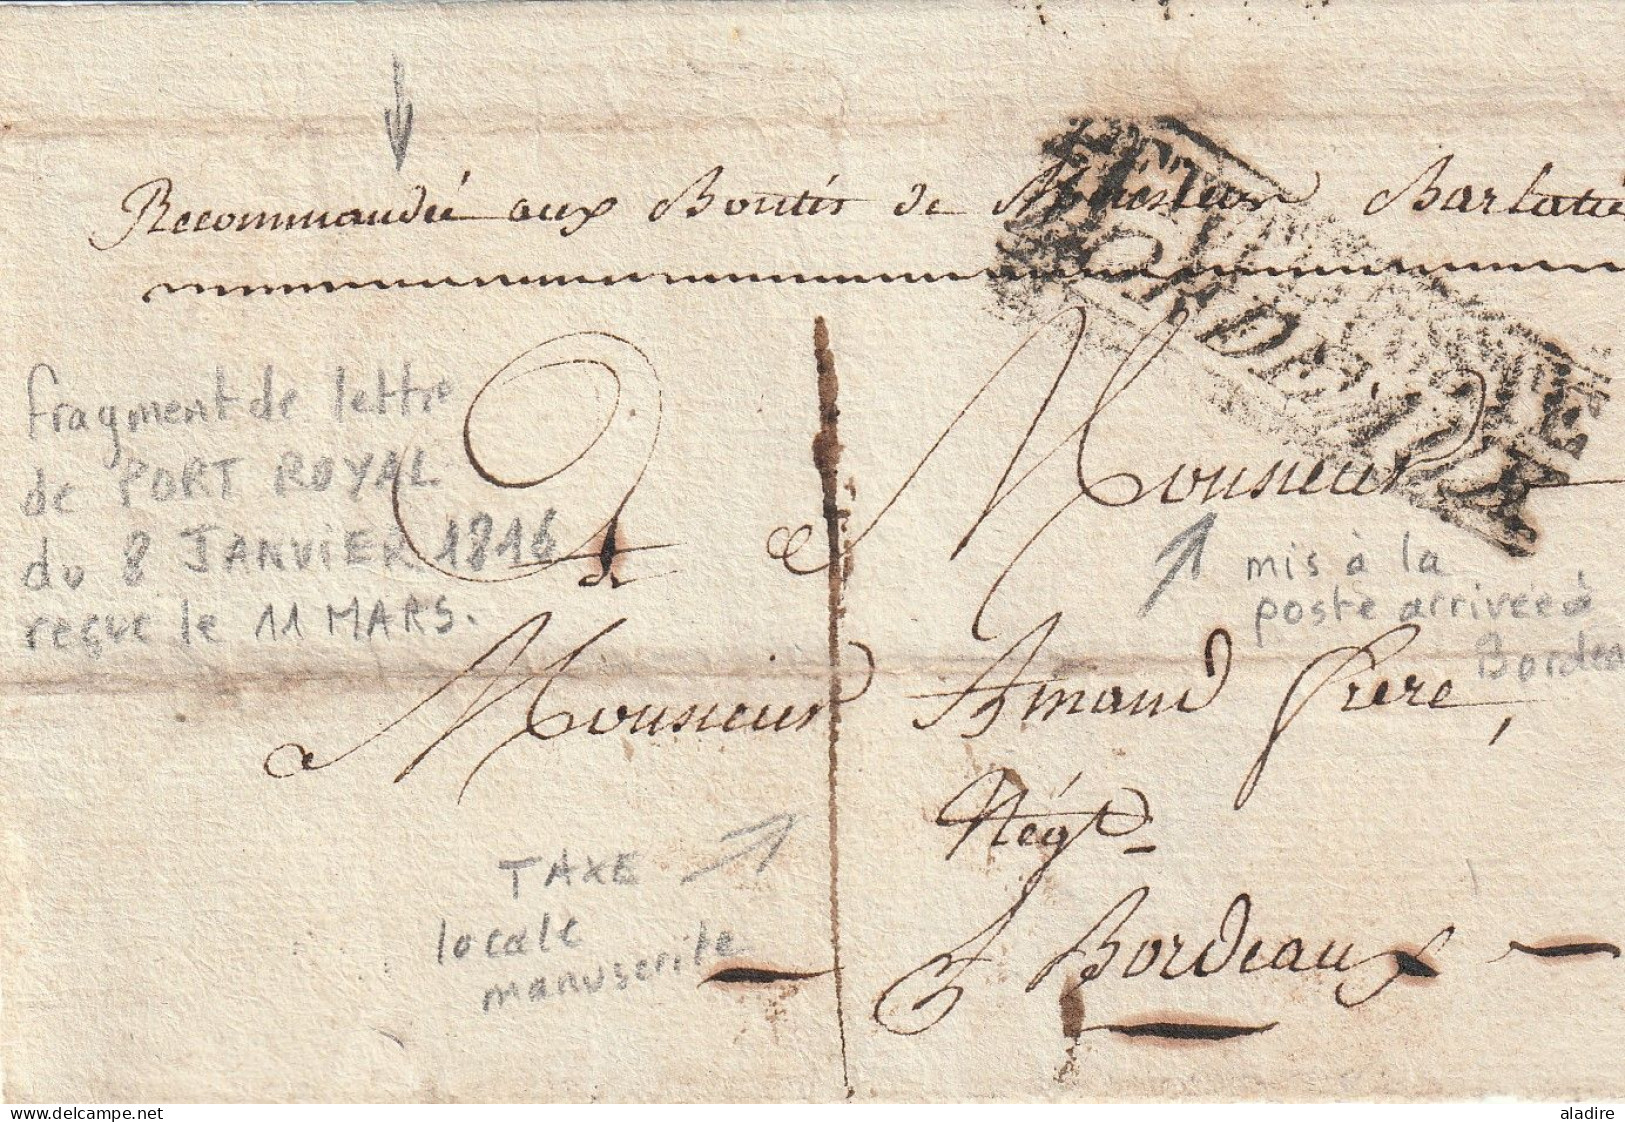 Recommandée aux Bontés de Monsieur Barlatié
A Monsieur
fragment de lettre
de PORT ROYAL
du 8 JANVIER 1816
reçue le 11 MARS.
mis à la
poste arrivée à
Bordea
Monsieur Amaud frere,
Négt
TAXE
locale
manuscrite
A Bordeaux
aladire